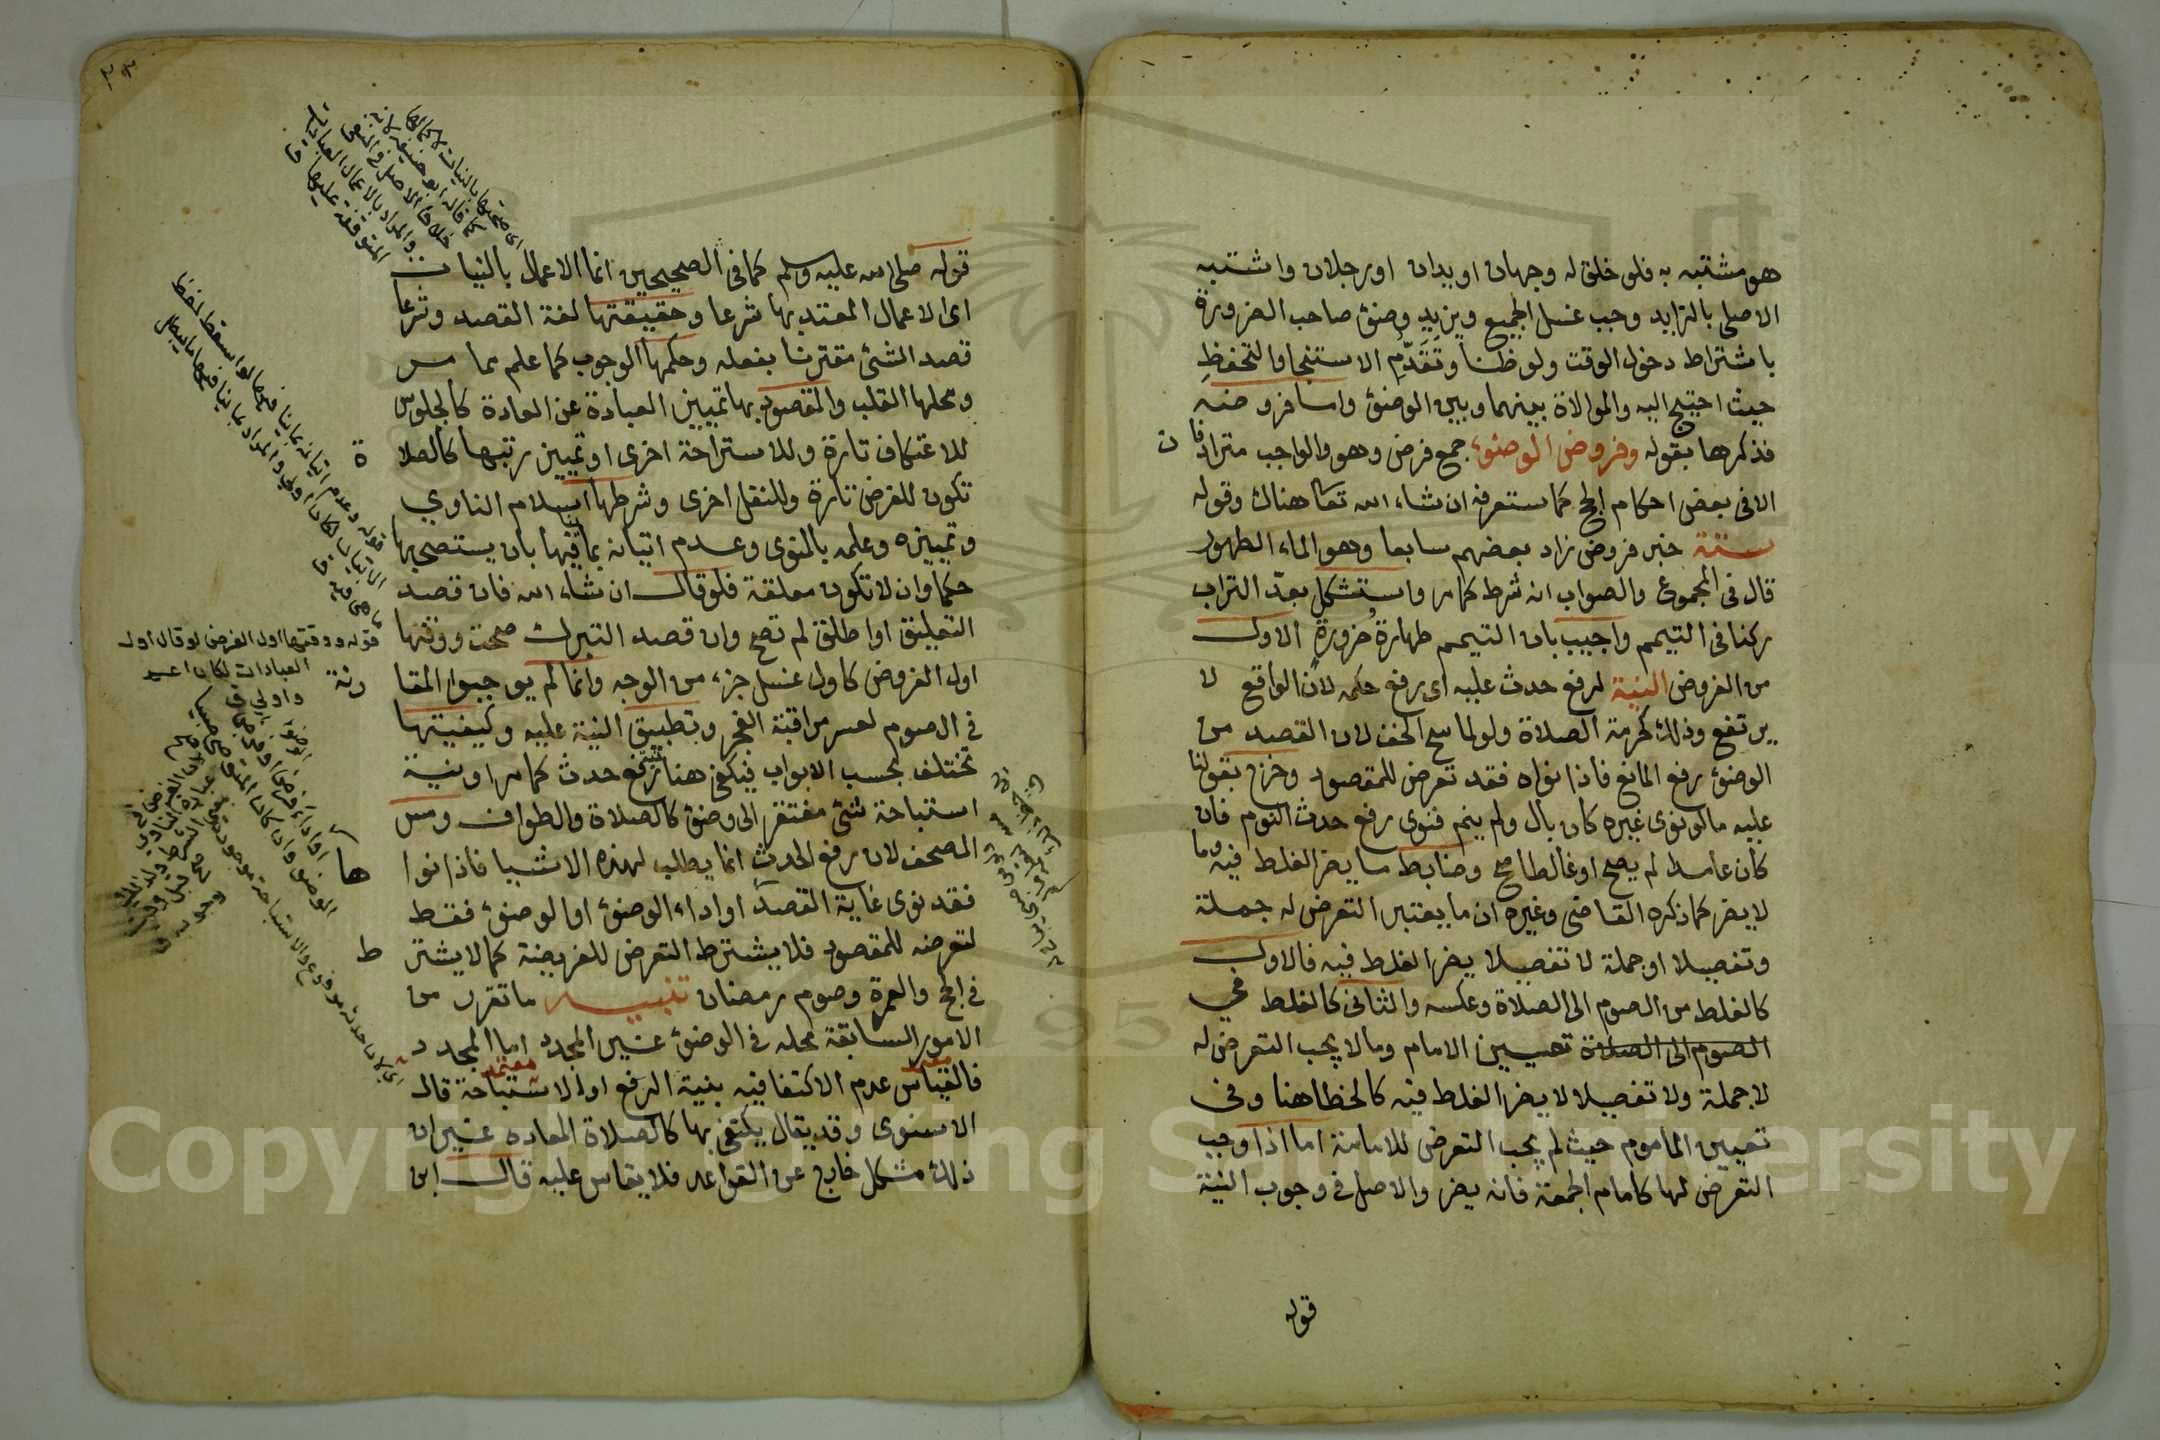 هو مشتبه به فلو خلق له وجهان او يدان او رجلان واشتبه
الاصلى بالزايد وجب غسل الجميع ويزيد وضوء صاحب الضرورة
باشتراط دخول الوقت ولو ظنا وتقدم الاستنجا والتحفظ
حيث احتيج اليه والموالاة بينهما وبين الوضوء واما فروضه
فذكرها بقوله وفروض الوضوء جمع فرض وهو والواجب مترادفان
الا فى بعض احكام الحج كما ستعرفه ان شاء الله تعا هناك وقوله
ستة خبر فروض زاد بعضهم سابعا وهو الماء الطهور
قال فى المجموع والصواب انه شرط كما مر واستشكل بعد التراب
ركنا فى التيمم واجيب بان التيمم طهارة ضرورة الاول
من الفروض النية لرفع حدث عليه اى رفع حكمه لان الواقع لا
يرتفع وذلك لحرمة الصلاة ولو لماسح الخف لان القصد من
الوضوء رفع المانع فاذا نواه فقد تعرض للمقصود وخرج بقولنا
عليه ما لو نوى غيره كان بال ولم ينم فنوى رفع حدث النوم فان
كان عامدا لم يصح او غالطا صح وضابط ما يضر الغلط فيه وما
لا يضر كما ذكره القاضى وغيره ان ما يعتبر التعرض له جملة
وتفصيلا او جملة لا تفصيلا يضر الغلط فيه فالاول
كالغلط من الصوم الى الصلاة وعكسه والثانى كالغلط في
الصوم الى الصلاة تعيين الامام وما لا يجب التعرض له
لا جملة ولا تفصيلا لا يضر الغلط فيه كالخطا هنا وفى
تعيين الماموم حيث لم يجب التعرض للامامة اما اذا وجب
التعرض لها كامام الجمعة فانه يضر والاصل فى وجوب النية
قوله
قوله صلى الله عليه وسلم كما فى الصحيحين انما الاعمال بالنيات
اى الاعمال المعتد بها شرعا وحقيقتها لغة القصد وشرعا
قصد الشئ مقترنا بفعله وحكمها الوجوب كما علم مما مر
ومحلها القلب والمقصود بها تمييز العبادة عن العادة كالجلوس
للاعتكاف تارة وللاستراحة اخرى او تمييز رتبها كالصلاة
تكون للفرض تارة وللنفل اخرى وشرطها اسلام الناوي
وتمييزه وعلمه بالمنوى وعدم اتيانه بما ينافيها بان يستصحبها
حكما وان لا تكون معلقة فلو قال ان شاء الله فان قصد
التعليق او اطلق لم تصح وان قصد التبرك صحت ووقتها
اول الفروض كاول غسل جزء من الوجه وانما لم يوجبوا المقارنة
فى الصوم لعسر مراقبة الفجر وتطبيق النية عليه وكيفيتها
تختلف بحسب الابواب فيكفى هنا نية رفع حدث كما مر او نية
استباحة شئ مفتقر الى وضوء كالصلاة والطواف ومس
المصحف لان رفع الحدث انما يطلب لهذه الاشيا فاذا نواها
فقد نوى غاية القصد او اداء الوضوء او الوضوء فقط
لتعرضه للمقصود فلا يشترط التعرض للفرضية كما لا يشترط
فى الحج والعمرة وصوم رمضان تنبيه ما تقرر من
الامور السابقة محله فى الوضوء غير المجدد اما المجدد
فالقياس عدم الاكتفا فيه بنية الرفع او الاستباحة قال
معتمد
الاسنوى وقد يقال يكتفى بها كالصلاة المعاده غير ان
ذلك مشكل خارج عن القواعد فلا يقاس عليه قال ابن
اى صحتها بالنيات لا كمالها
كما قاله ابو حنيفة
المتوقفة عليها
قوله وعدم اتيانه بما ينافيها لو اسقط لفظ
الاتيان لكان اولى والمراد بما ينافيها
قوله ووقتها اول الفروض لو قال اول
العبادات لكان اعم
واولى ق
Copyright © King Saud University
1957